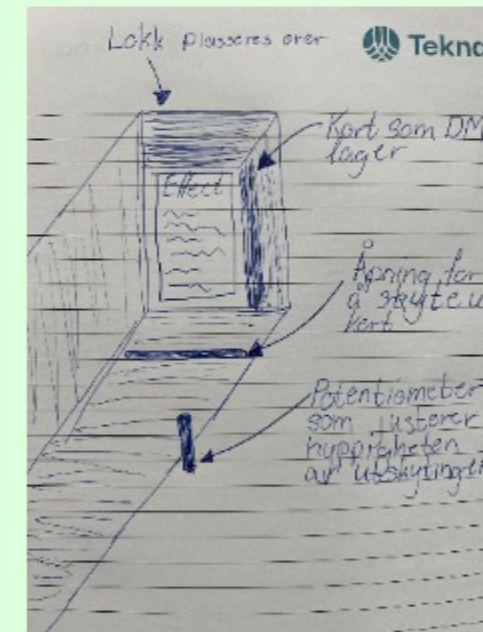 Lokk plasseres over
Tekna
Kort som DM
lager
Effect
Åpning for
å skyte u
kort
Potentiometer
som justerer
hyppigheten
av utskytinge